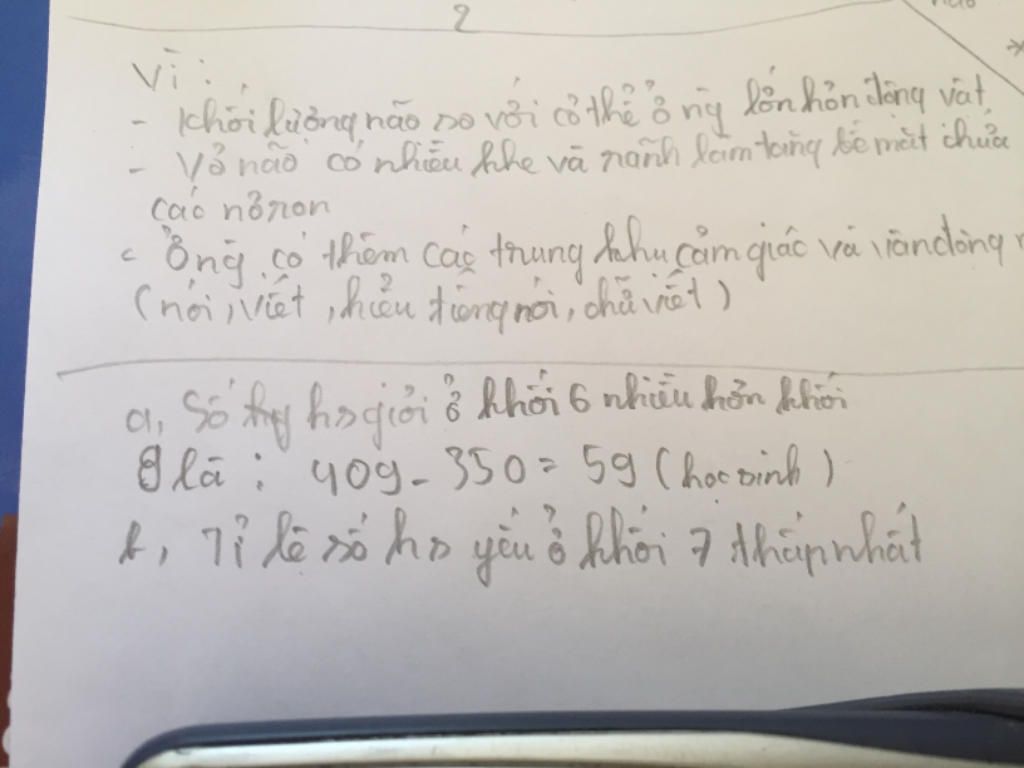 2
Vì :
- Khối lượng não so với cơ thể ở ng lớn hơn động vật
- Vỏ não có nhiều khe và rãnh làm tăng bề mặt chứa
các nơron
- Ở ng có thêm các trung khu cảm giác và vận động
(nói, viết, hiểu tiếng nói, chữ viết)
a, Số hs giỏi ở khối 6 nhiều hơn khối
8 là : 409 - 350 = 59 (học sinh)
b, Tỉ lệ số hs yếu ở khối 7 thấp nhất